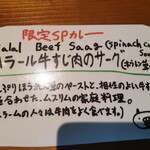 限定SPカレー
Halal Beef Saag (Spinach cu
ハラール牛すじ肉のサーグ (ほうれん草
ほうれん草のペーストと、相性のよい牛す
を合わせた、ムスリムの家庭料理。
ムスリムの人々は牛肉をよく食べます。)